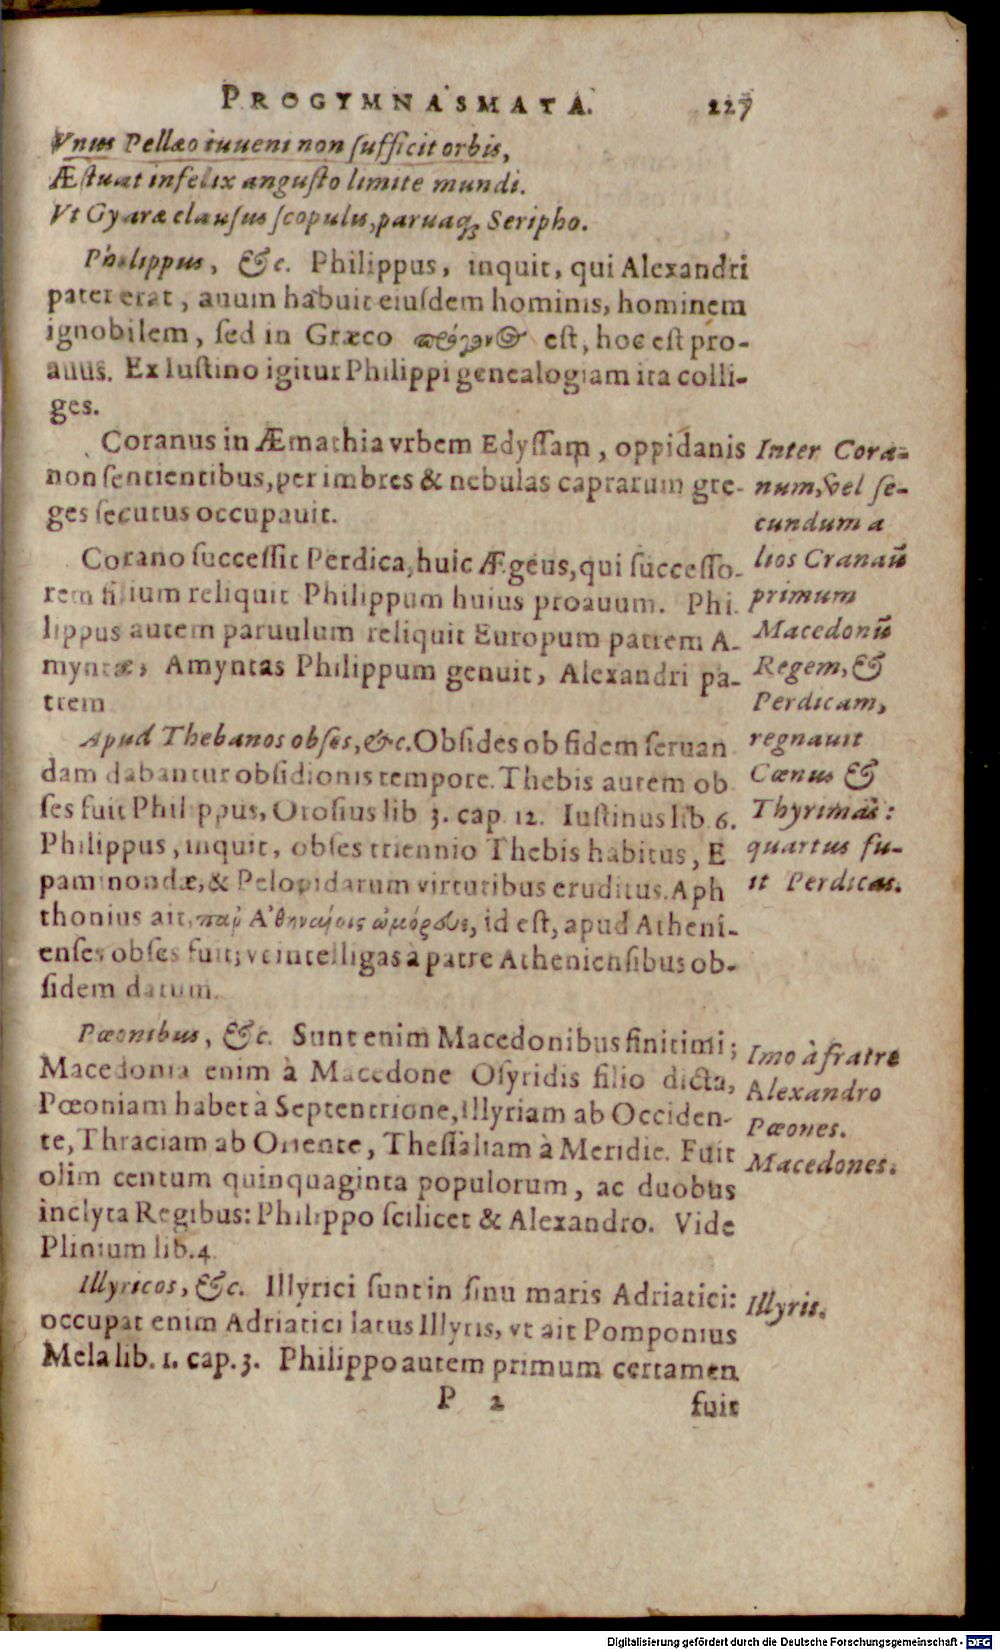 PROGYMNASMATA. 227
Vnus Pellæo iuueni non sufficit orbis,
Æstuat infelix angusto limite mundi.
Vt Gyaræ clausus scopulis, paruaq; Seripho.
Philippus, &c. Philippus, inquit, qui Alexandri
pater erat, auum habuit eiusdem hominis, hominem
ignobilem, sed in Græco est, hoc est pro-
auus. Ex Iustino igitur Philippi genealogiam ita colli-
ges.
Coranus in Æmathia vrbem Edyssam, oppidanis
non sentientibus, per imbres & nebulas caprarum gre-
ges secutus occupauit.
Corano successit Perdica, huic Ægeus, qui successo-
rem filium reliquit Philippum huius proauum. Phi
lippus autem paruulum reliquit Europum patrem A-
myntæ, Amyntas Philippum genuit, Alexandri pa-
trem
Apud Thebanos obses, &c. Obsides ob fidem seruan
dam dabantur obsidionis tempore. Thebis autem ob
ses fuit Philippus, Orosius lib 3. cap. 12. Iustinus lib. 6.
Philippus, inquit, obses triennio Thebis habitus, E
paminondæ, & Pelopidarum virtutibus eruditus. Aph
thonius ait, id est, apud Atheni-
enses obses fuit; vt intelligas à patre Atheniensibus ob-
sidem datum.
Pæonibus, &c. Sunt enim Macedonibus finitimi;
Macedonia enim à Macedone Osyridis filio dicta,
Pœoniam habet à Septentrione, Illyriam ab Occiden-
te, Thraciam ab Oriente, Thessaliam à Meridie. Fuit
olim centum quinquaginta populorum, ac duobus
inclyta Regibus: Philippo scilicet & Alexandro. Vide
Plinium lib. 4.
Illyricos, &c. Illyrici sunt in sinu maris Adriatici:
occupat enim Adriatici latus Illyris, vt ait Pomponius
Mela lib. 1. cap. 3. Philippo autem primum certamen
P 2 fuit
Inter Cora-
num, vel se-
cundum a
lios Cranaū
primum
Macedonū
Regem, &
Perdicam,
regnauit
Cœnus &
Thyrimas:
quartus fu-
it Perdicas.
Imo à fratre
Alexandro
Pæones.
Macedones.
Illyris.
Digitalisierung gefördert durch die Deutsche Forschungsgemeinschaft - DFG